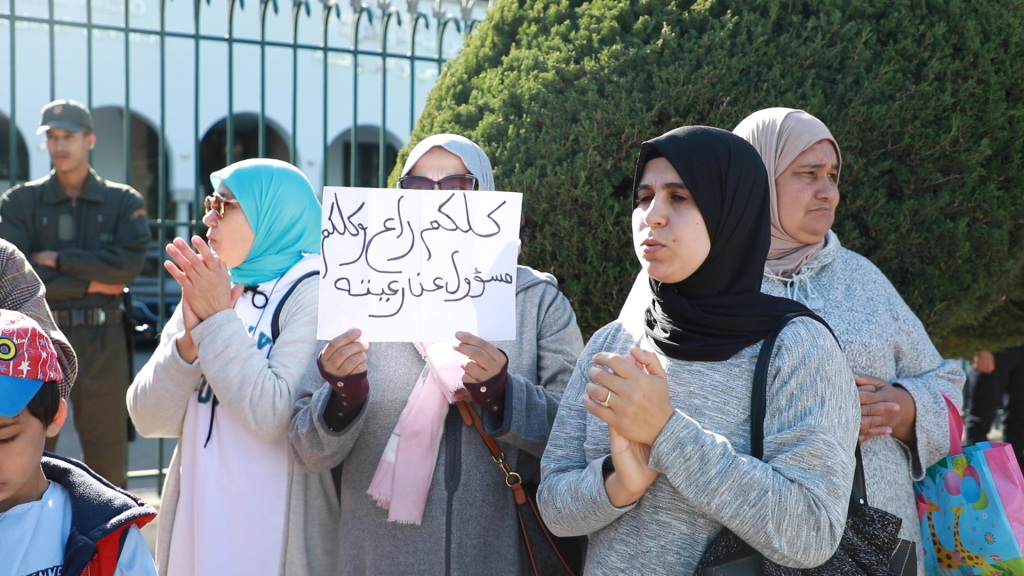 كلكم راع وكلكم
مسؤول عن رعيته